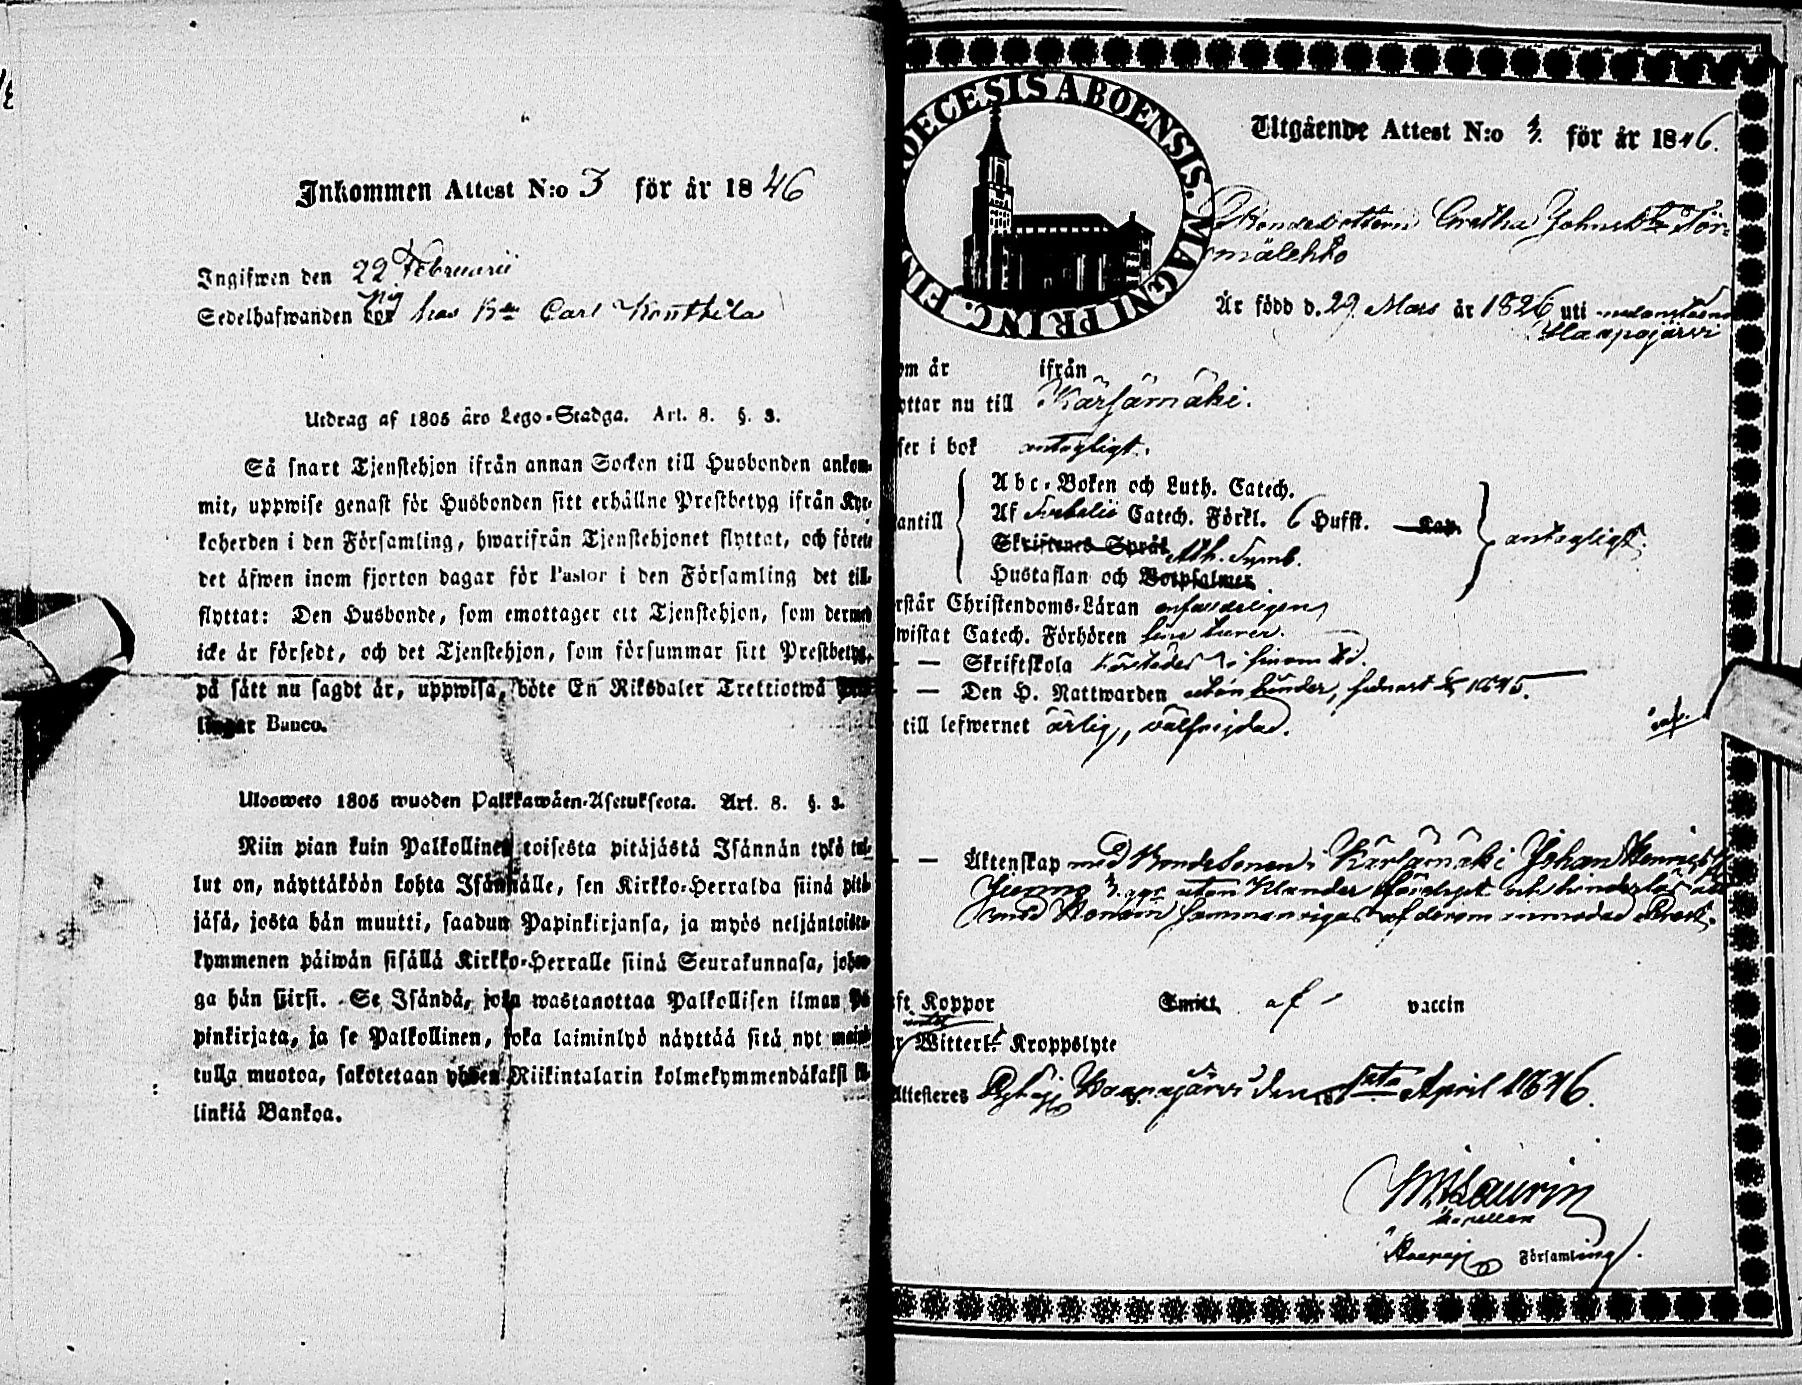 Inkommen Attest N:o 3 för år 1846
Ingifwen den 22 Februarii
Sedelhafwanden bor pig hos Carl
Utdrag af 1805 års Lego-Stadga. Art. 8. §. 3.
Så snart Tjenstehjon ifrån annan Socken till Husbonden ankom-
mit, uppwise genast för Husbonden sitt erhållne Prestbetyg ifrån Kyr-
koherden i den Församling, hwarifrån Tjenstehjonet flyttat, och förete
det äfwen inom fjorton dagar för Pastor i den Församling det till-
flyttat: Den Husbonde, som emottager ett Tjenstehjon, som dermed
icke är försedt, och det Tjenstehjon, som försummar sitt Prestbetyg,
på sätt nu sagdt är, uppwisa, böte En Riksdaler Trettiotwå
lingar Banco.
Ulosweto 1805 wuoden Palkkawäen-Asetuksesta. Art. 8. §. 3.
Niin pian kuin Palkollinen toisesta pitäjästä Isännän tykö tul-
lut on, näyttäköön kohta Isännälle, sen Kirkko-Herralda siinä pitä-
jäsä, josta hän muutti, saadun Papinkirjansa, ja myös neljäntoista-
kymmenen päiwän sisällä Kirkko-Herralle siinä Seurakunnasa, johon-
ga hän siirsi. Se Isändä, joka wastanottaa Palkollisen ilman Pa-
pinkirjata, ja se Palkollinen, joka laiminlyö näyttää sitä nyt maini-
tulla muotoa, sakotetaan yhden Riikintalarin kolmekymmendäkaksi kil-
linkiä Bankoa.
OECESIS ABOENSIS. MAGNI PRINC. FIN
Utgående Attest N:o 4 för år 1846.
Bondedottern Gretha Johansdtr Tör-
mälehto
Är född d. 29 Mars år 1826 uti nedanstående
Haapajärvi
om år ifrån
ottar nu till Kärsämäki.
ser i bok antagligt.
Abc-Boken och Luth. Catech.
antill Af Svebelii Catech. Förkl. 6 Hufst. Kap. antagligt.
Skriftenes Språk Ath. Symb.
Hustaflan och Botpsalmer
rstår Christendoms-Läran enfaldeligen
wistat Catech. Förhören
— Skriftskola
— — Den H. Nattwarden utan hinder, senast 1845.
till lefwernet ärlig, välfrejdad.
— — Äktenskap med Bondesonen i Kärsämäki Johan Henrics
3 ggr utan klander och hinderlös att
med honom sammanvigas af derom anmodad Prest.
ft Koppor Smitt af vaccin
intet
r Witterl:t Kroppslyte
Attesteres Haapajärvi den 1sta April 1846.
Laurin
Kapellan
Haapaj Församling.